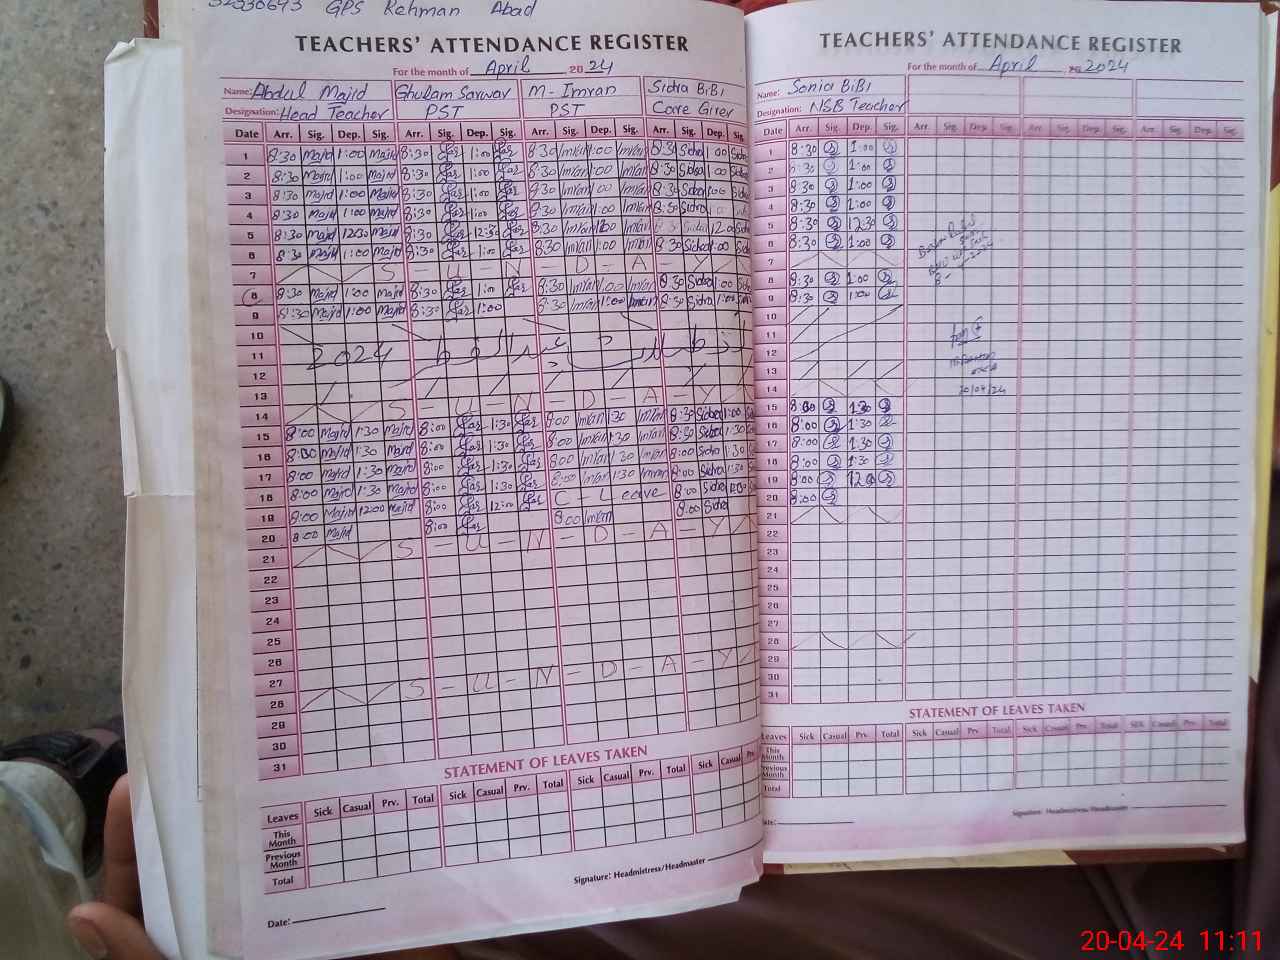 GPS Rehman Abad
TEACHERS' ATTENDANCE REGISTER
For the month of April, 2024
Name: Abdul Majid Ghulam Sarwar M-Imran Sidra BiBi
Designation: Head Teacher PST PST Care Giver
Date Arr. Sig. Dep. Sig. Arr. Sig. Dep. Sig. Arr. Sig. Dep. Sig. Arr. Sig. Dep. Sig.
1 8:30 Majid 1:00 Majid 8:30 1:00 8:30 Imran 1:00 Imran 8:30 Sidra 1:00 Sidra
2 8:30 Majid 1:00 Majid 8:30 1:00 8:30 Imran 1:00 Imran 8:30 Sidra 1:00 Sidra
3 8:30 Majid 1:00 Majid 8:30 1:00 8:30 Imran 1:00 Imran 8:30 Sidra 1:00 Sidra
4 8:30 Majid 1:00 Majid 8:30 1:00 8:30 Imran 1:00 Imran 8:30 Sidra
5 8:30 Majid 12:30 Majid 8:30 12:30 8:30 Imran Imran Sidra 12:00 Sidra
6 8:30 Majid 1:00 Majid 8:30 1:00 8:30 Imran 1:00 Imran 8:30 Sidra 1:00 Sidra
7 S - U - N - D - A - Y
8 8:30 Majid 1:00 Majid 8:30 1:00 8:30 Imran 1:00 Imran 8:30 Sidra 1:00 Sidra
9 8:30 Majid 1:00 Majid 8:30 1:00 8:30 Imran 1:00 Imran 8:30 Sidra 1:00
10
11 2024
12
13
14 S - U - N - D - A - Y
15 8:00 Majid 1:30 Majid 8:00 1:30 8:00 Imran 1:30 Imran 8:30 Sidra 1:00
16 8:00 Majid 1:30 Majid 8:00 1:30 8:00 Imran 1:30 Imran 8:30 Sidra 1:30
17 8:00 Majid 1:30 Majid 8:00 1:30 8:00 Imran 1:30 Imran 8:00 Sidra 1:30
18 8:00 Majid 1:30 Majid 8:00 1:30 8:00 Imran 1:30 Imran 8:00 Sidra 1:30
19 8:00 Majid 12:00 Majid 8:00 12:00 C - Leave 8:00 Sidra
20 8:00 Majid 8:00 8:00 Imran 8:00 Sidra
21 S - U - N - D - A - Y
22
23
24
25
26
27
28 S - U - N - D - A - Y
29
30
31
STATEMENT OF LEAVES TAKEN
Leaves Sick Casual Prv. Total Sick Casual Prv. Total Sick Casual Prv. Total Sick Casual
This Month
Previous Month
Total
Signature: Headmistress/Headmaster
Date:
TEACHERS' ATTENDANCE REGISTER
For the month of April, 2024
Name: Sonia BiBi
Designation: NSB Teacher
Date Arr. Sig. Dep. Sig. Arr. Sig. Dep. Sig. Arr. Sig. Dep. Sig. Arr. Sig. Dep. Sig.
1 8:30 1:00
2 8:30 1:00
3 8:30 1:00
4 8:30 1:00
5 8:30 12:30
6 8:30 1:00
7
8 8:30 1:00
9 8:30 1:00
10
11
12
13
14 20/04/24
15 8:00 1:30
16 8:00 1:30
17 8:00 1:30
18 8:00 1:30
19 8:00 12:00
20 8:00
21
22
23
24
25
26
27
28
29
30
31
STATEMENT OF LEAVES TAKEN
Leaves Sick Casual Prv. Total Sick Casual Prv. Total Sick Casual Prv. Total Sick Casual Prv. Total
This Month
Previous Month
Total
Signature: Headmistress/Headmaster
Date:
20-04-24 11:11